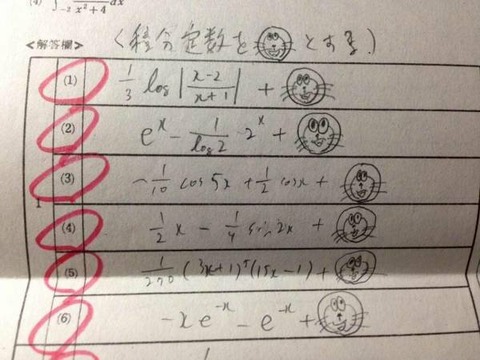 (4) ∫₋₂ 1/(x²+4) dx
<解答欄> (積分定数を とする)
(1) 1/3 log|(x-2)/(x+1)| +
(2) eˣ - 1/log2 · 2ˣ +
(3) -1/10 cos 5x + 1/2 cos x +
(4) 1/2 x - 1/4 sin 2x +
(5) 1/270 (3x+1)⁵(15x-1) +
(6) -xe⁻ˣ - e⁻ˣ +